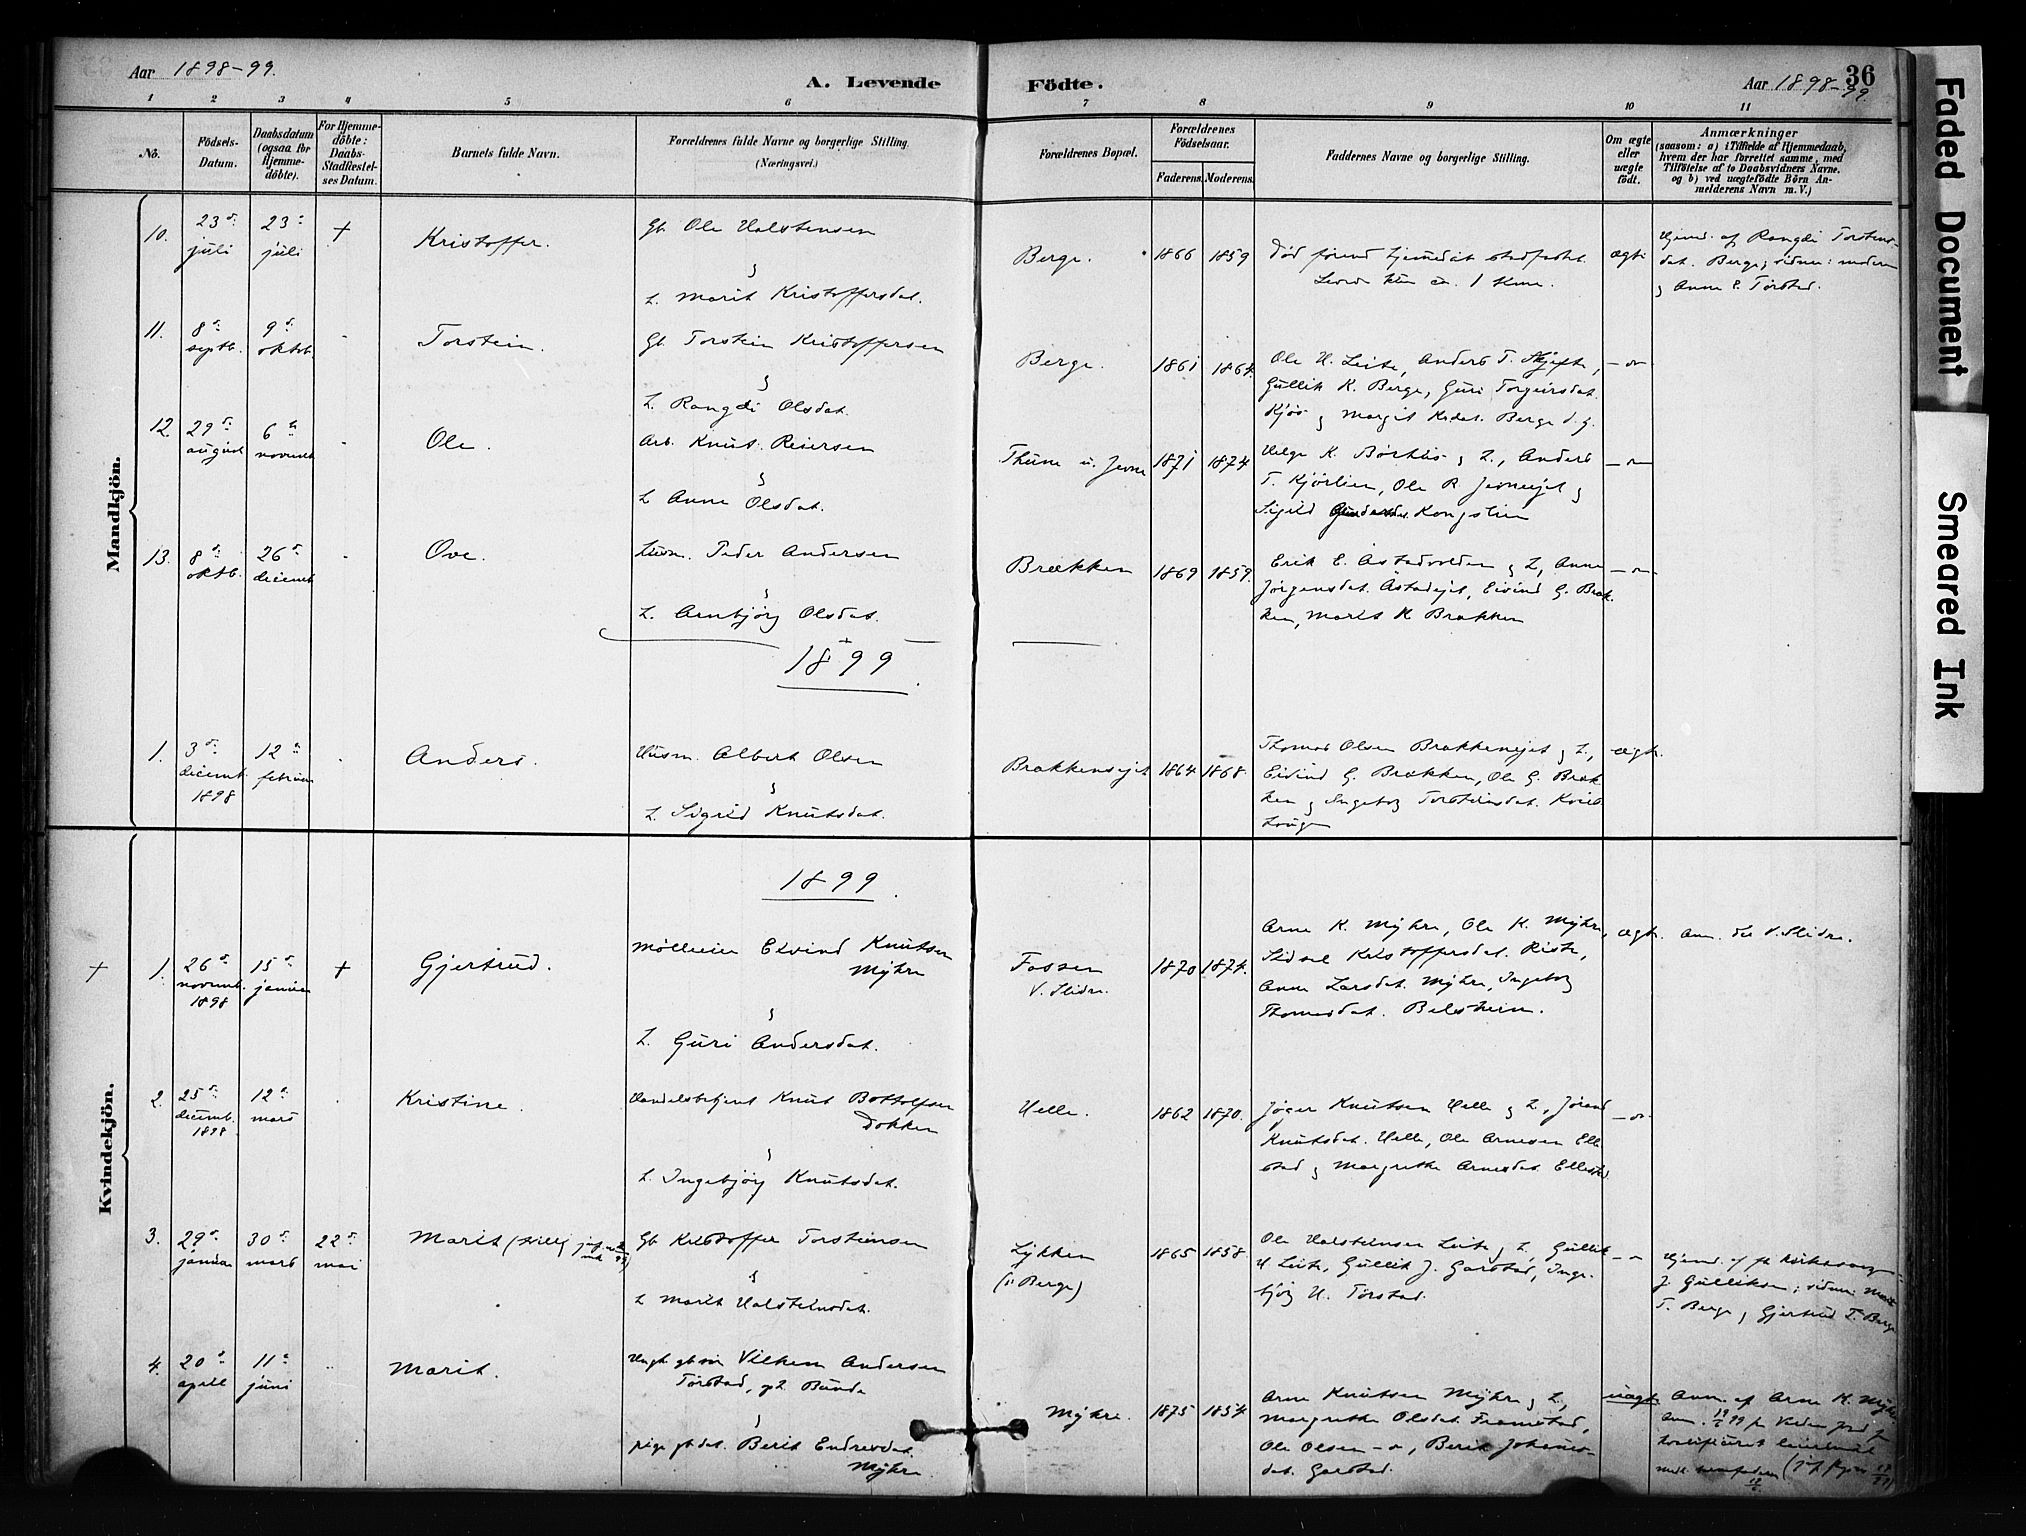 Aar 1898-99.
A. Levende
Födte.
Aar 1898-99.
36
1 2 3 4 5 6 7 8 9 10 11
No.
Födsels-Datum.
Daabsdatum (ogsaa for Hjemme-döbte).
For Hjemme-döbte: Daabs-Stadfæstel-ses Datum.
Barnets fulde Navn.
Forældrenes fulde Navne og borgerlige Stilling.
(Næringsvei.)
Forældrenes Bopæl.
Forældrenes Födselsaar.
Faderens.
Moderens.
Faddernes Navne og borgerlige Stilling.
Om ægte eller uægte födt.
Anmærkninger
(saasom: a) i Tilfælde af Hjemmedaab,
hvem der har forrettet samme, med
Tilföielse af to Daabsvidners Navne.
og b) ved uægtefödte Börn An-
melderens Navn m. V.)
Mandkjön.
10. 23 juli
23 juli
+
Kristoffer.
Gb. Ole Halstensen
&
h. Marit Kristoffersdat.
Berge.
1866 1859
Død førend hjemmedåb stadfæstet.
ægte
Hjemd. af Rangdi Torstens-
dat. Berge; vidner: moderen
og Anne E. Tørstad.
11. 8 septb.
9 oktob.
Torstein.
Gb. Torstein Kristoffersen
&
h. Rangdi Olsdat.
Berge.
1861 1864.
Ole H. Leite, Anders T.
Gullik K. Berge, Guri Torgeirsdat.
Kjøs og Margit Kr.dat. Berge
12. 29 august
6 novemb.
Ole.
Arb. Knut Reiersen
&
h. Anne Olsdat.
Thune u. Jevne
1871 1874
Helge K. Børhus og h., Anders
T. Kjørlien, Ole R. Jevneejet og
Sigrid Kongslien
13. 8 oktb.
26 decemb.
Ove.
Husm. Peder Andersen
&
h. Arnbjørg Olsdat.
Brækken
1869 1859.
Erik E. Åstadvolden og h., Anne
Jørgensdat. Åstadejet, Eivind G. Bræk-
ken, Marit K Brækken
1899
1. 3 decemb. 1898
12 februar
Anders.
Husm. Albert Olsen
&
h. Sigrid Knutsdat.
Brækkensejet
1864 1868.
Thomas Olsen Brækkenejet og h.,
Eivind G. Brækken, Ole G. Bræk-
ken og Ingeborg Torsteinsdat. Kvis-
hauge
ægte.
Kvindekjön.
1899
+
1. 26 novemb. 1898
15 januar
+
Gjertrud.
Mølleeier Eivind Knutsen
Myhre
&
h. Guri Andersdat.
Fossen
V. Slidre.
1870 1874.
Arne K. Myhre, Ole K. Myhre,
Sidsel Kristoffersdat. Riste,
Anne Larsdat. Myhre, Ingeborg
Thomasdat. Belsheim.
ægte.
Anm. til V. Slidre.
2. 25 decemb. 1898
12 mars
Kristine.
Handelsbetjent Knut Bottolfsen
Dokken
&
h. Ingebjørg Knutsdat.
Helle.
1862 1870.
Jøger Knutsen Helle og h., Jørand
Knutsdat. Helle, Ole Arnesen Elle-
stad og Margrethe Arnesdat. Ellestad.
3. 29 januar
30 mars
22 mai
Marit
Gb Kristoffer Torsteinsen
&
h Marit Halsteinsdat.
Lykken
(u Berge)
1865 1858.
Ole Halsteinsen Leite og h., Gullik
H Leite, Gullik J. Garstad, Inge-
bjørg H. Tørstad.
Hjemd. af fh. kirkesanger
J. Gulliksen; vidner: Marit
T. Berge og Gjertrud T. Berge
4. 20 april
11 juni
Marit.
Ungk. gbsøn Vilhem Andersen
Tørstad, opt. Bunde
&
pige gbdat. Berit Endresdat.
Myhre.
Myhre.
1875 1854.
Arne Knutsen Myhre og h.,
Margrethe Olsdat. Framstad,
Ole Olsen, Berit Johans-
dat. Garstad.
uægte
Anm. af Arne K. Myhre
Faded Document
Smeared Ink